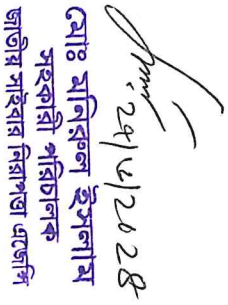 মোঃ মনিরুল ইসলাম
সহকারী পরিচালক
জাতীয় সাইবার নিরাপত্তা এজেন্সি